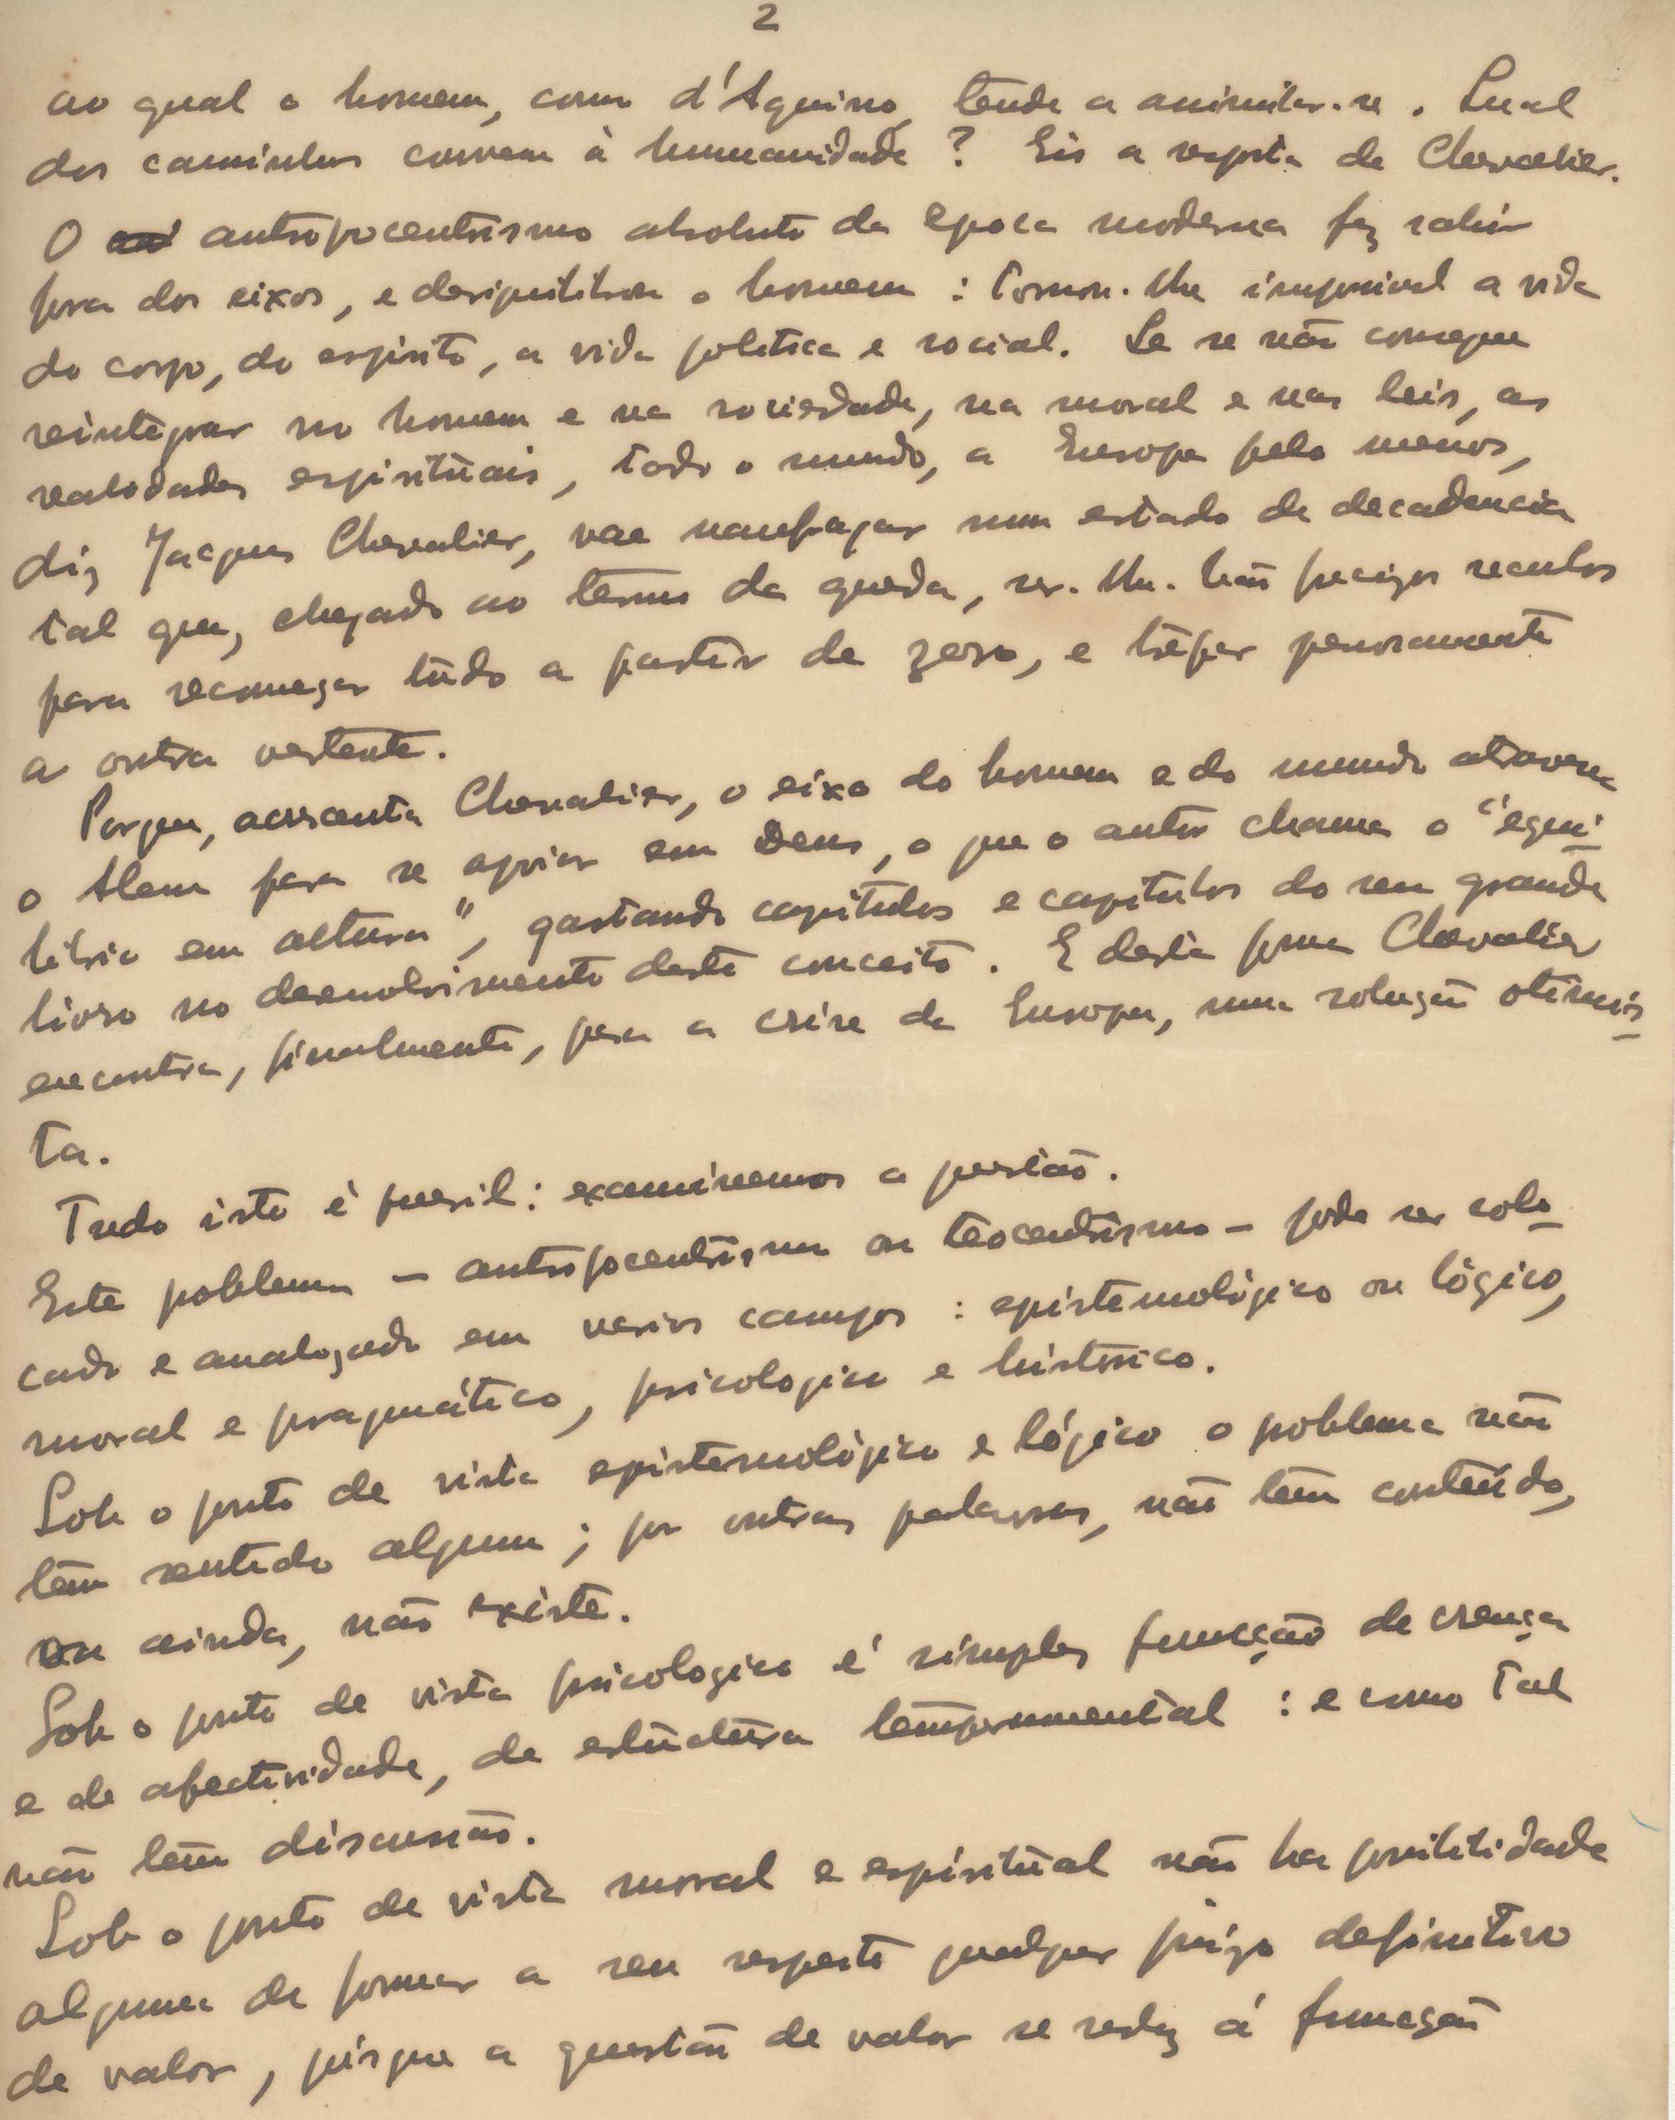 2
ao qual o homem, como d'Aquino, tende a assimilar-se. Qual
dos caminhos convem à humanidade? Eis a resposta de Chevalier.
O antropocentrismo absoluto da epoca moderna fez sahir
fora dos eixos, e desiquilibrou o homem: tornou-lhe impossivel a vida
do corpo, do espirito, a vida politica e social. Se se não consegue
reintegrar no homem e na sociedade, na moral e nas leis, as
realidades espirituais, todo o mundo, a Europa pelo menos,
diz Jacques Chevalier, vae naufragar num estado de decadencia
tal que, chegado ao termo da queda, ser-lhe-hão precizos seculos
para recomeçar tudo a partir de zero, e trepar penosamente
a outra vertente.
Porque, acrescenta Chevalier, o eixo do homem e do mundo atravessa
o Alem para se apoiar em Deus, o que o autor chama o "equi-
librio em altura", gastando capitulos e capitulos do seu grande
livro no desenvolvimento deste conceito. E desta forma Chevalier
encontra, finalmente, para a crise da Europa, uma solução otimis-
ta.
Tudo isto é pueril: examinemos a questão.
Este problema - antropocentrismo ou teocentrismo - pode ser colo-
cado e analogado em varios campos: epistemológico ou lógico,
moral e pragmático, psicologico e histórico.
Sob o ponto de vista epistemológico e lógico o problema não
tem sentido algum; por outras palavras, não tem conteúdo,
ou ainda, não existe.
Sob o ponto de vista psicologico é simples funcção de crença
e de afectividade, de estructura temperamental: e como tal
não tem discussão.
Sob o ponto de vista moral e espiritual não ha possibilidade
alguma de formar a seu respeito qualquer juizo definitivo
de valor, pórque a questão de valor se reduz á funcção